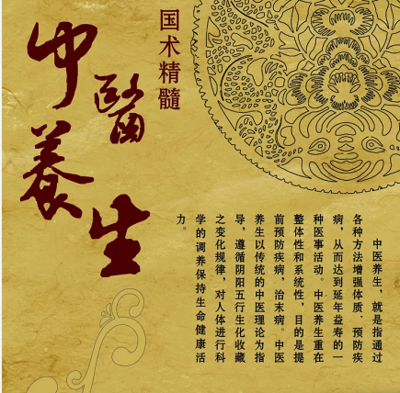 国术精髓
中醫
養生
中医养生，就是指通过
各种方法增强体质、预防疾
病，从而达到延年益寿的一
种医事活动。中医养生重在
整体性和系统性，目的是提
前预防疾病，治未病。中医
养生以传统的中医理论为指
导，遵循阴阳五行生化收藏
之变化规律，对人体进行科
学的调养保持生命健康活
力。